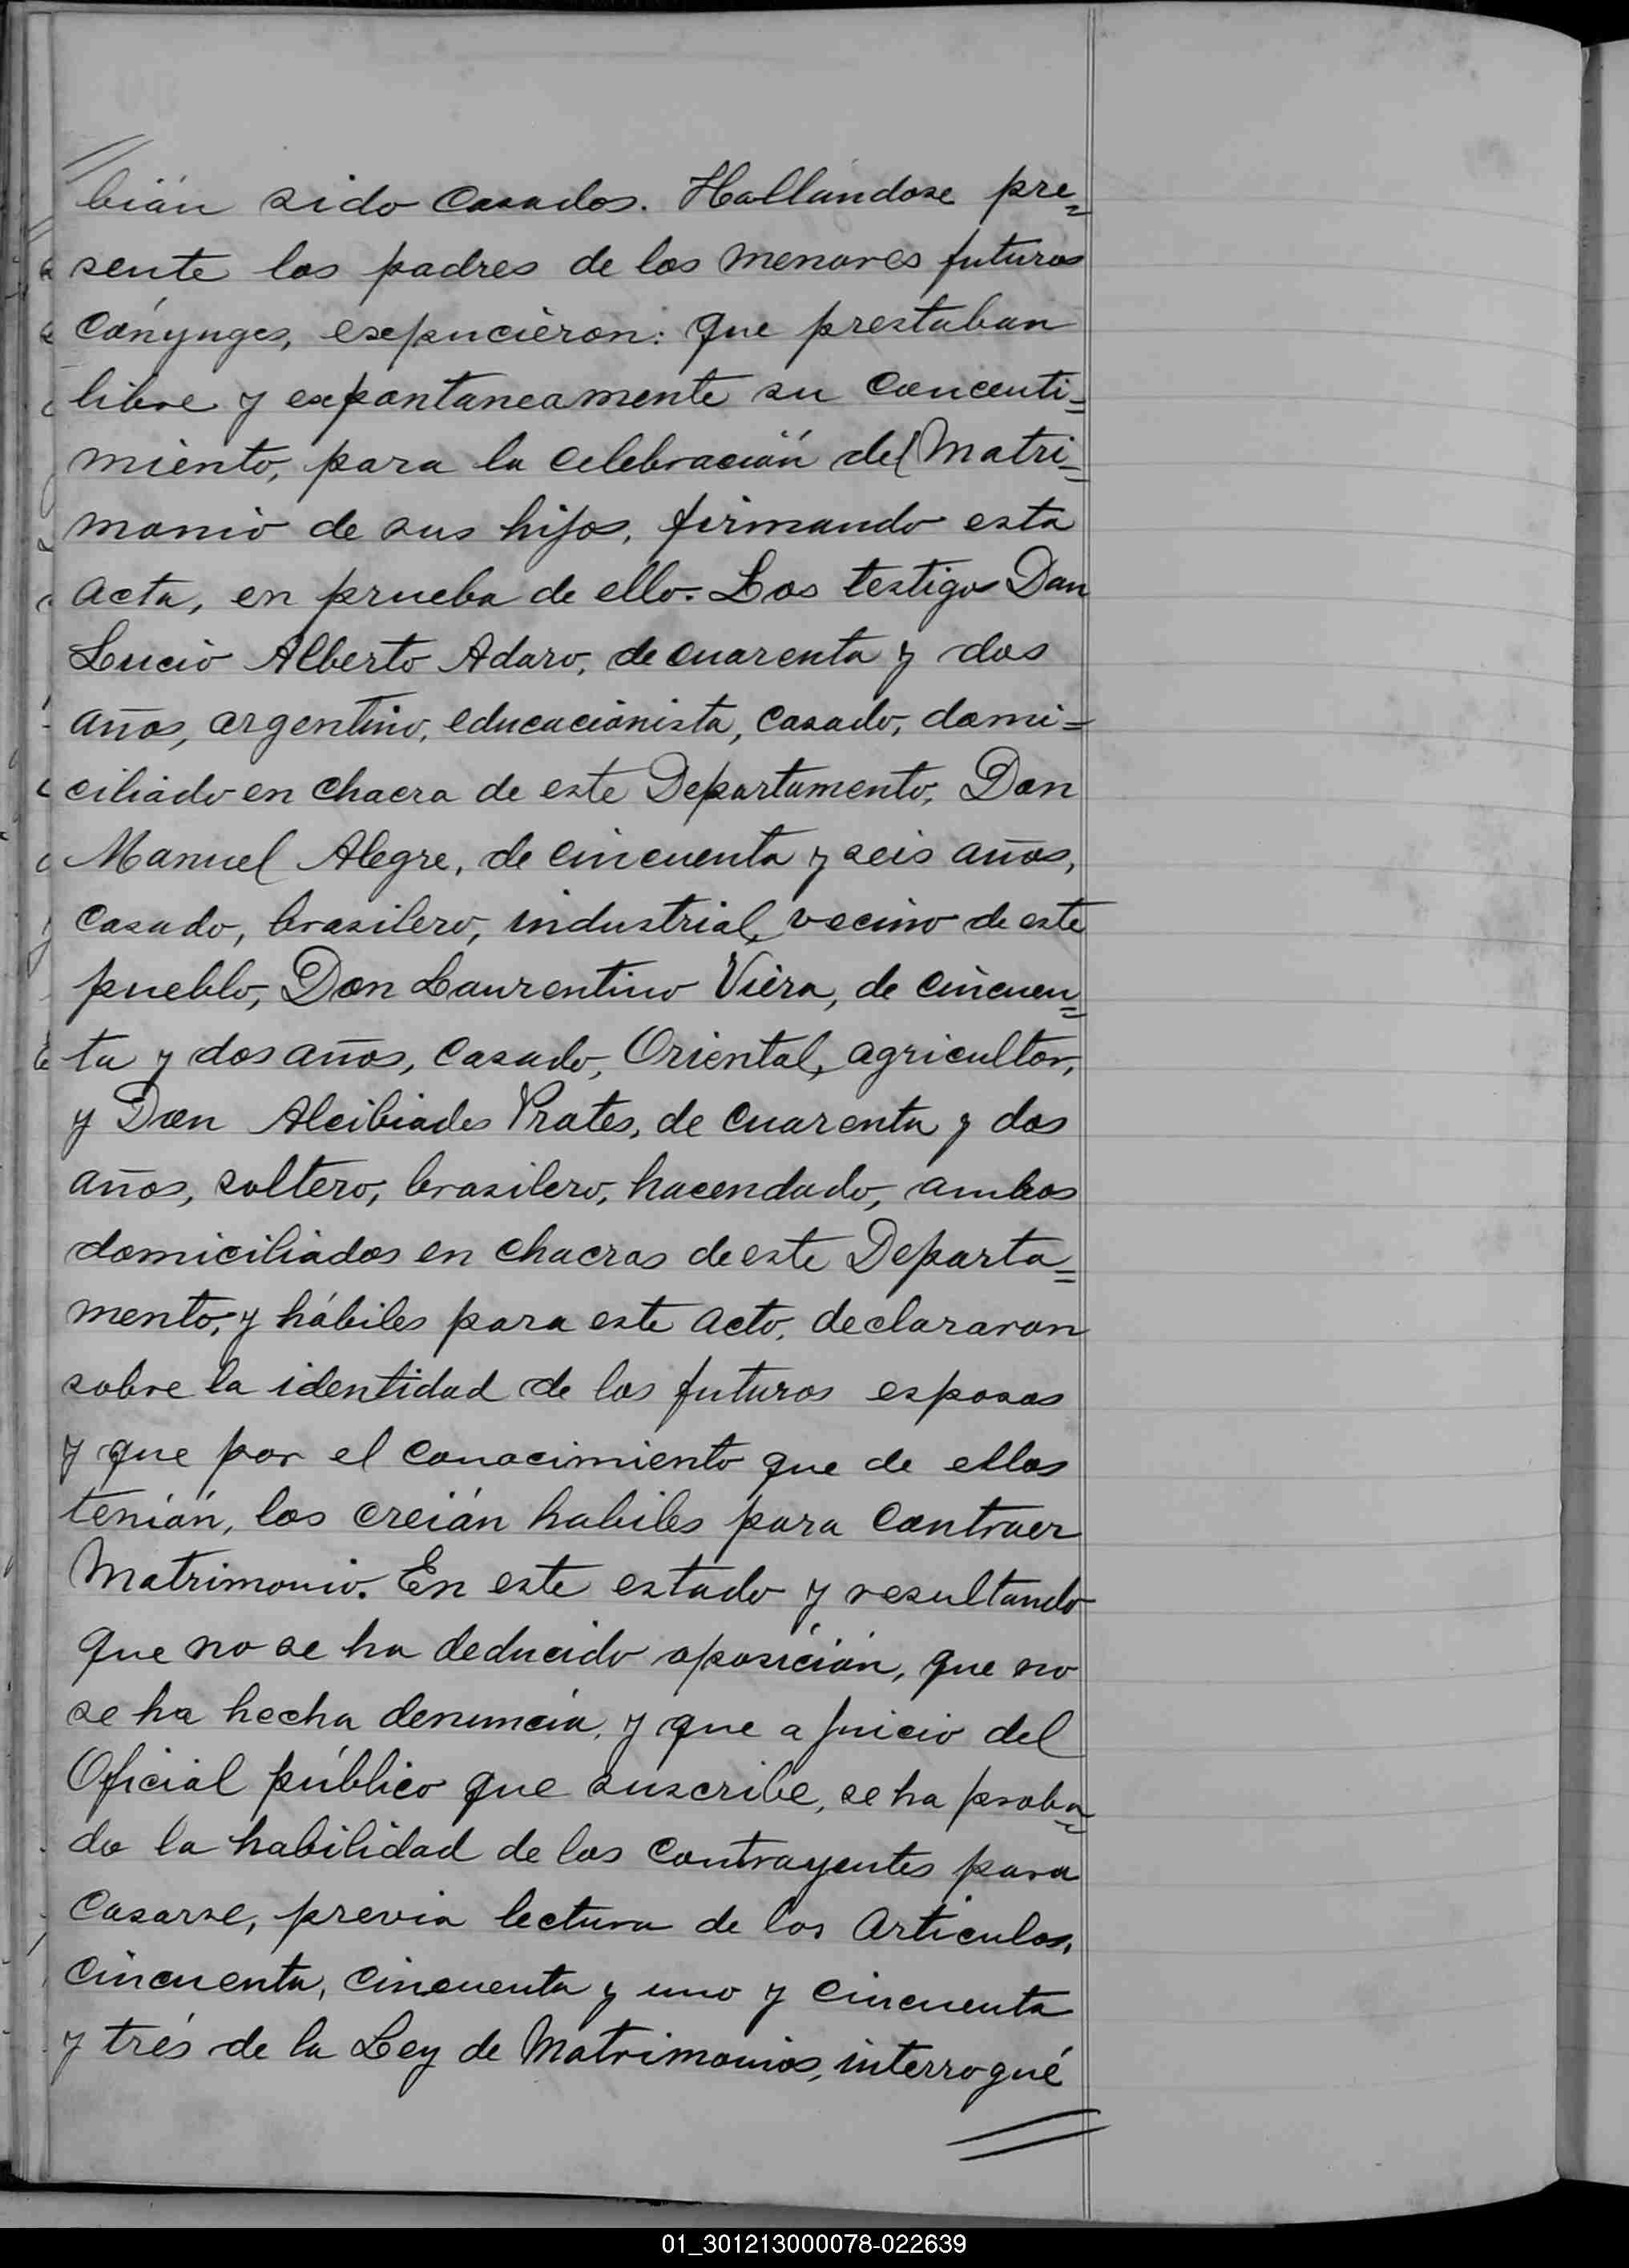 bián sido casados. Hallándose pre=
sente los padres de los menores futuros
cónyuges, exepucieron: que prestaban
libre y expontaneamente su concenti=
miento, para la celebración del Matri=
monio de sus hijos, firmando esta
acta, en prueba de ello. Los testigos Don
Lucio Alberto Adaro, de cuarenta y dos
años, argentino, educacionista, casado, domi=
ciliado en chacra de este Departamento, Don
Manuel Alegre, de cincuenta y seis años,
casado, brasilero, industrial, vecino de este
pueblo, Don Laurentino Viera, de cincuen=
ta y dos años, casado, Oriental, agricultor,
y Don Alcibiades Prates, de cuarenta y dos
años, soltero, brasilero, hacendado, ambos
domiciliados en chacras de este Departa=
mento, y hábiles para este acto, declararon
sobre la identidad de los futuros esposos
y que por el conocimiento que de ellos
tenián, los creián habiles para contraer
Matrimonio. En este estado y resultando
que no se ha deducido oposición, que no
se ha hecha denuncia, y que a juicio del
Oficial público que suscribe, se ha proba=
do la habilidad de los contrayentes para
casarse, previa lectura de los Articulos,
cincuenta, cincuenta y uno y cincuenta
y trés de la Ley de Matrimonios, interrogué
01_301213000078-022639